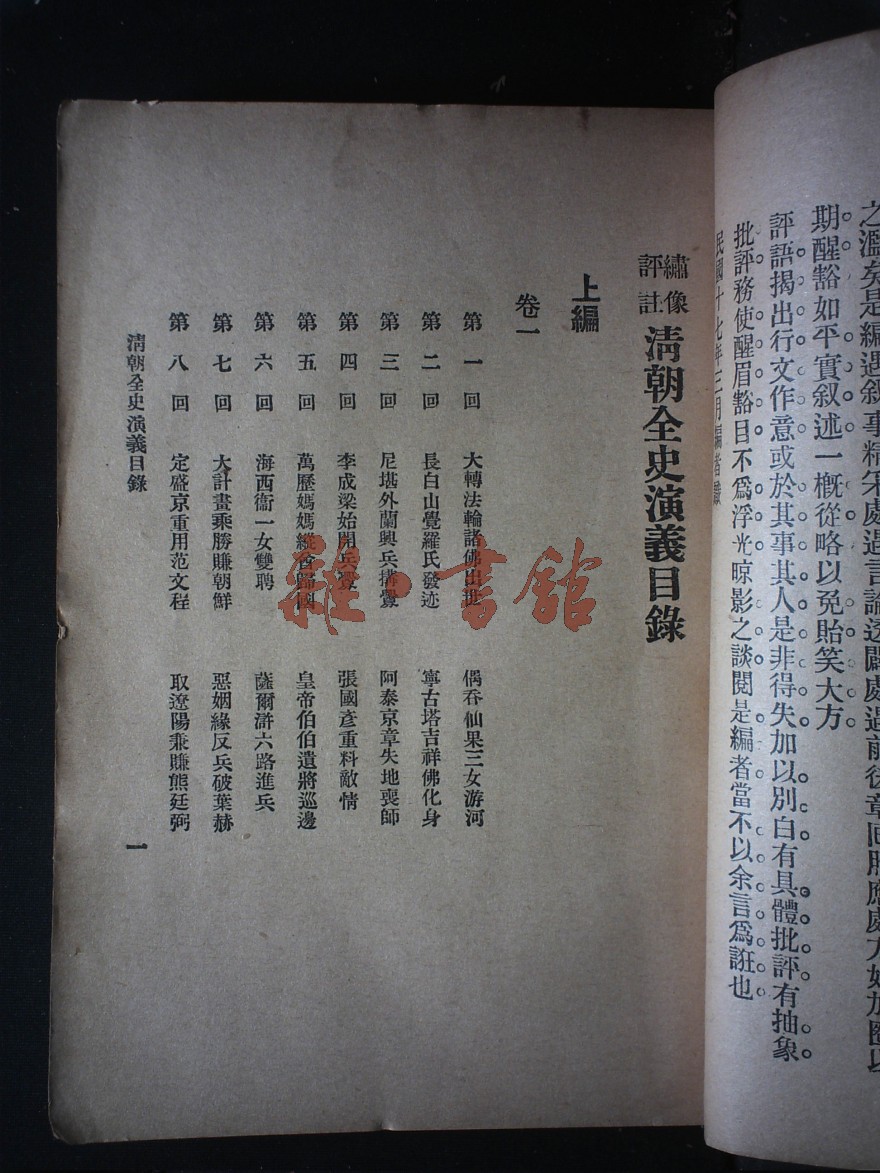 之濫矣是編遇敘事精宋處遇言論透闢處遇前後章回照應處尤好加圈以
期醒豁如平實叙述一概從略以免貽笑大方
評語揭出行文作意或於其事其人是非得失加以別白有具體批評有抽象
批評務使醒眉豁目不爲浮光晾影之談閱是編者當不以余言爲誑也
民國十七年三月編者識
繡像評註清朝全史演義目錄
上編
卷一
第一回 大轉法輪諸佛出進 偶吞仙果三女游河
第二回 長白山覺羅氏發迹 寧古塔吉祥佛化身
第三回 尼堪外蘭興兵搆釁 阿泰京章失地喪師
第四回 李成梁始開兵釁 張國彥重料敵情
第五回 萬歷媽媽縱酋歸國 皇帝伯伯遣將巡邊
第六回 海西衞一女雙聘 薩爾滸六路進兵
第七回 大計畫乘勝賺朝鮮 惡姻緣反兵破葉赫
第八回 定盛京重用范文程 取遼陽兼賺熊廷弼
清朝全史演義目錄
一
雜·書館